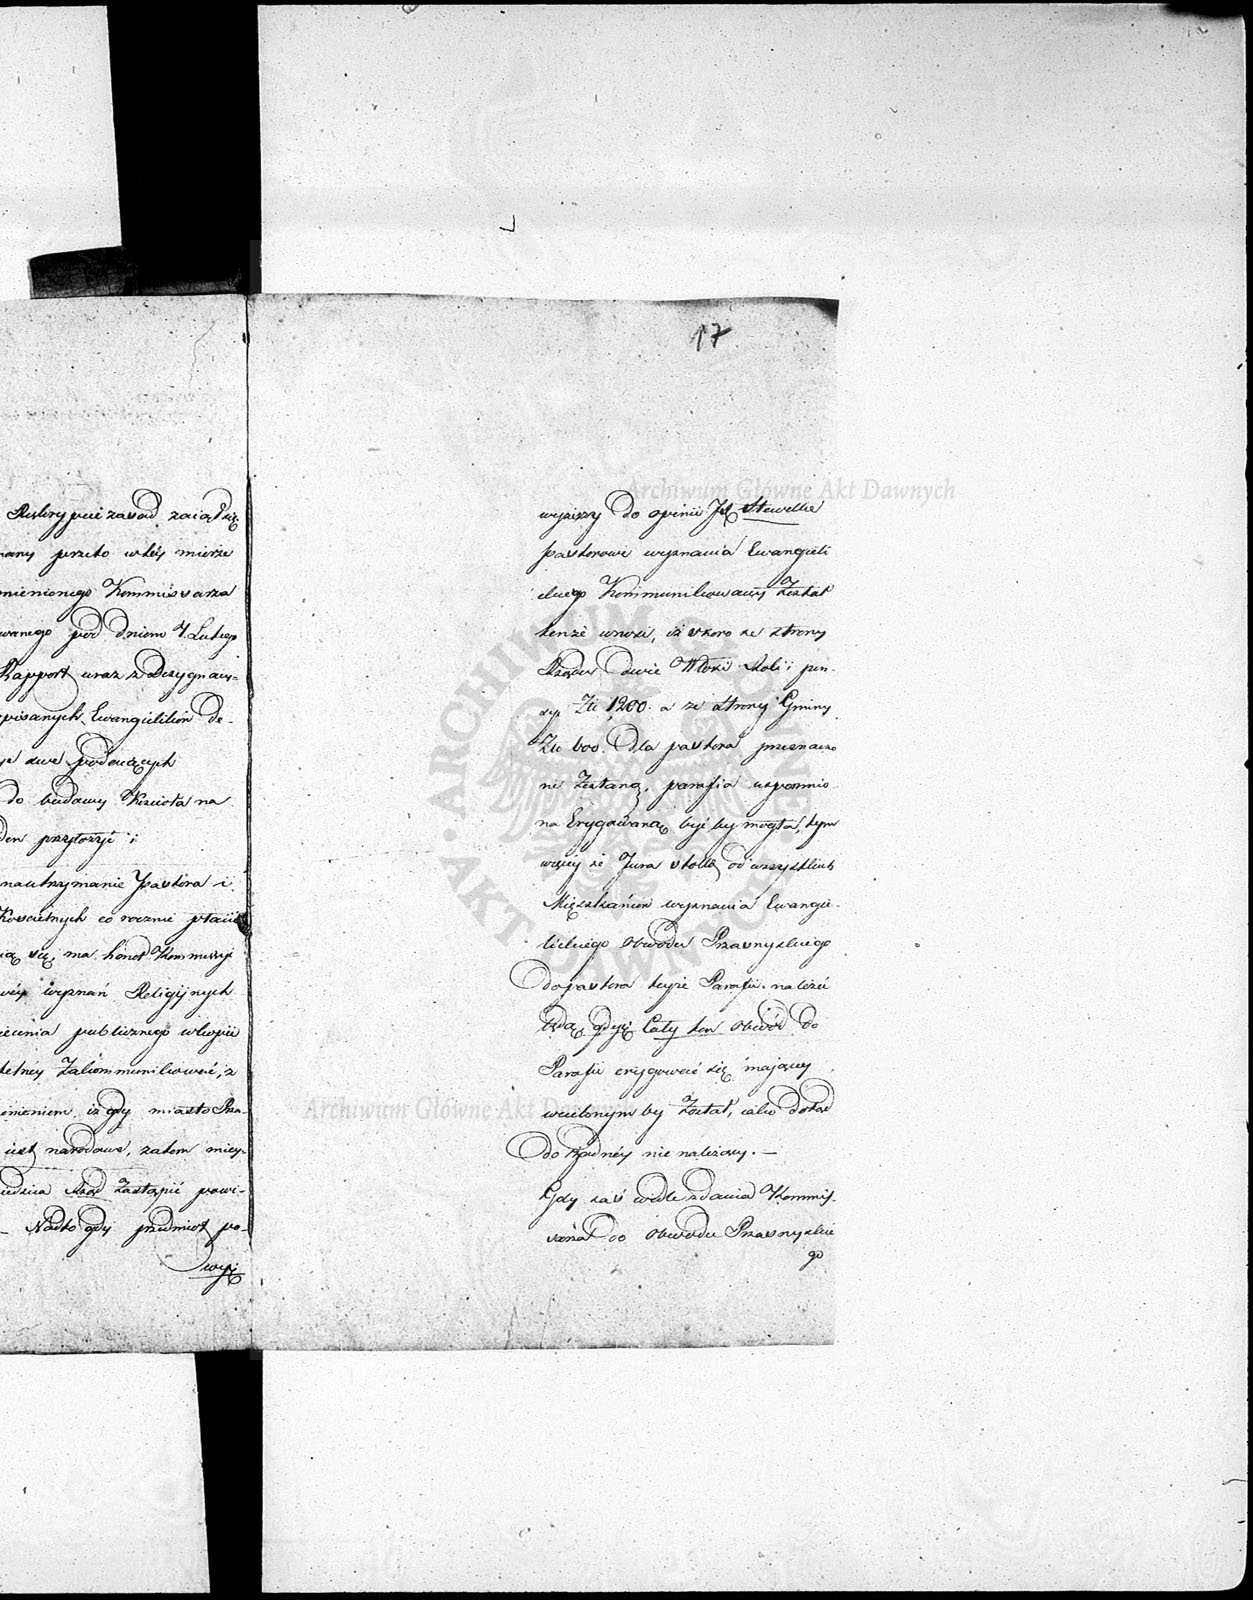 Reskrypcie zasad zaiął się
nany przeto w tey mierze
mienionego Kommissarza
wanego pod dniem 7. Lutego
Rapport wraz z Desygnaw-
pisanych Ewangelików de-
dwe podaiących
do budowy Kościoła na
den przyłożyć i
na utrzymanie Pastora i
Kościelnych co rocznie płacić
ią się, ma honor Kommissyi
wéy wyznań Religijnych
iecenia publicznego w kopii
telney zakommunikować, z
ienieniem iż gdy miasto Prza-
iest narodowe, zatem miey-
iedzica Rząd zastąpić powi-
Nadto gdy przedmiot po-
wyż
17
wyższy do opinii JX Stawellie
pastorowi wyznania Ewangieli
ckiego Kommunikowany został
tenże wnosi, iż skoro ze strony
Rządu dwie Włóki Roli i pen-
syi Złt 1200. a ze strony Gminy
Złt 600. dla pastora przeznaczo
ne zostaną, parafia wspomnio
na Erygowaną być by mogła, tym
więcéy że Jura stolæ od wszystkich
Mięszkańców wyznania Ewangie-
lickiego Obwodu Przasnyskiego
do pastora teyże Parafii należeć
będą, gdyż Cały ten Obwód do
Parafii erygować się maiącéy
wcielonym by został, iako dotąd
do żadnéy nie należący. —
Gdy zaś wedle zdania Kommis-
sarza do Obwodu Przasnyskie
go
Archiwum Główne Akt Dawnych
Archiwum Główne Akt Dawnych
ARCHIWUM GŁÓWNE AKT DAWNYCH